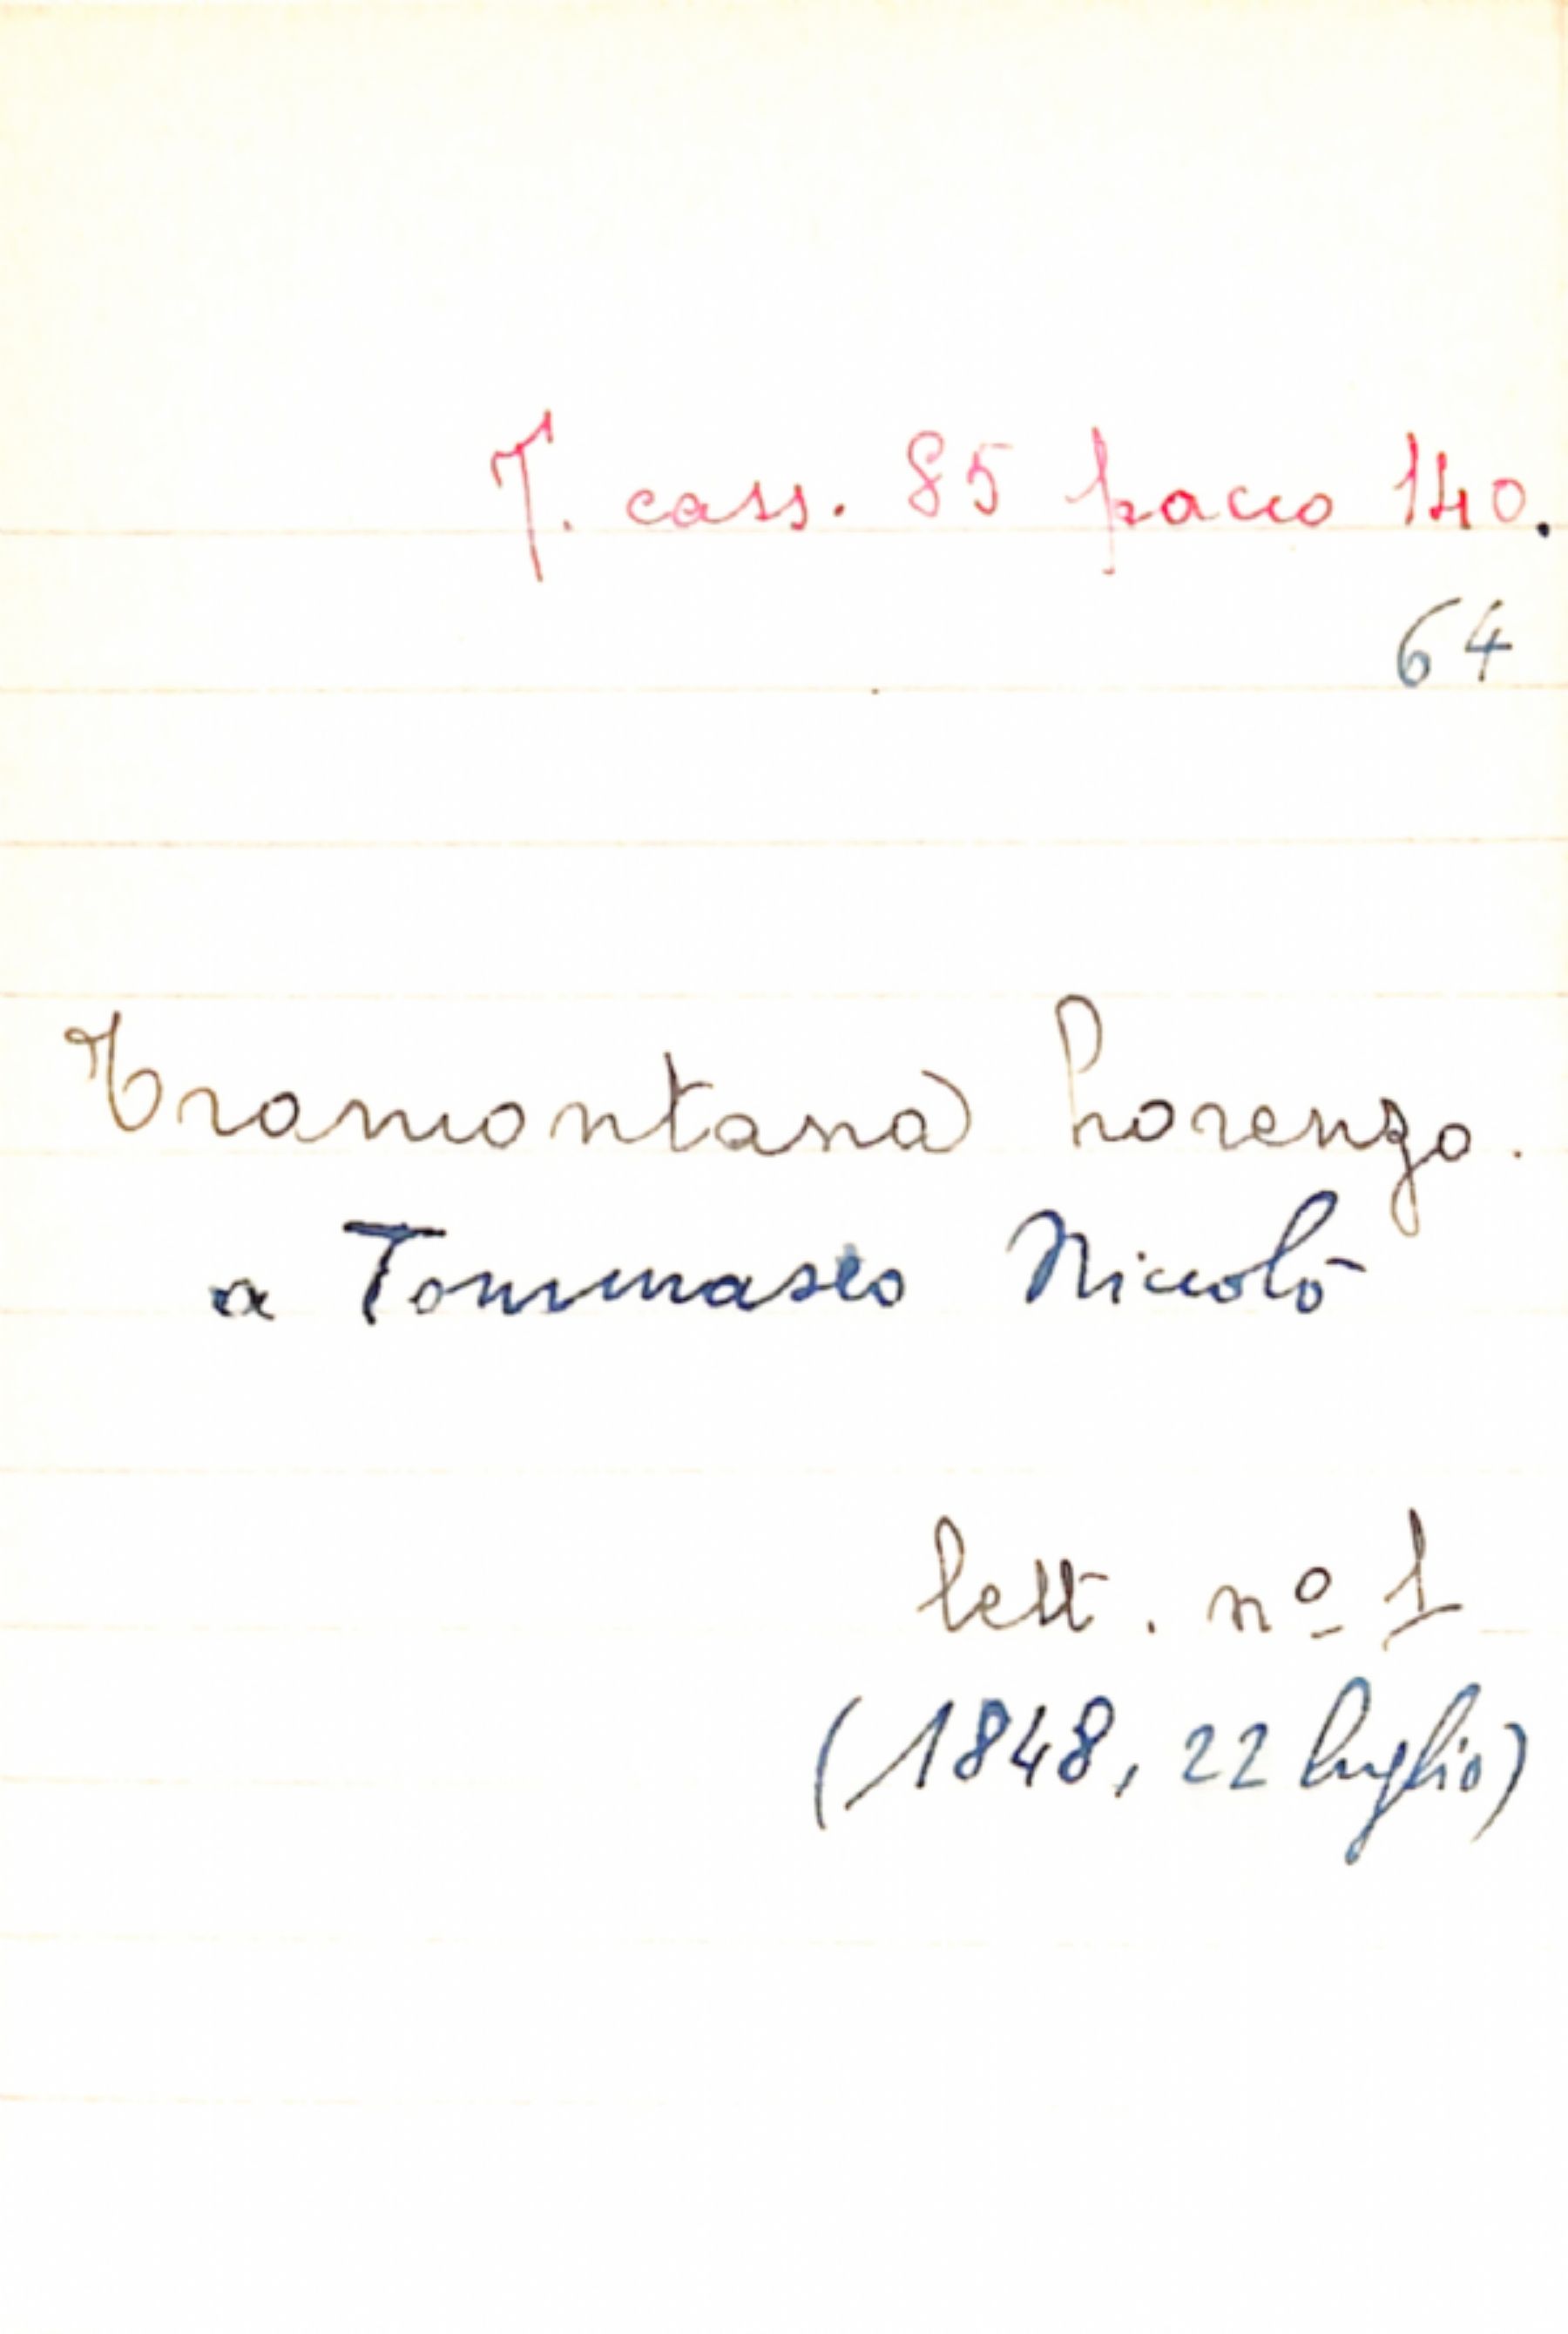 T. cass. 85 pacco 140.
64
Tramontana Lorenzo.
a Tommaseo Niccolò
lett. nº 1
(1848, 22 luglio)